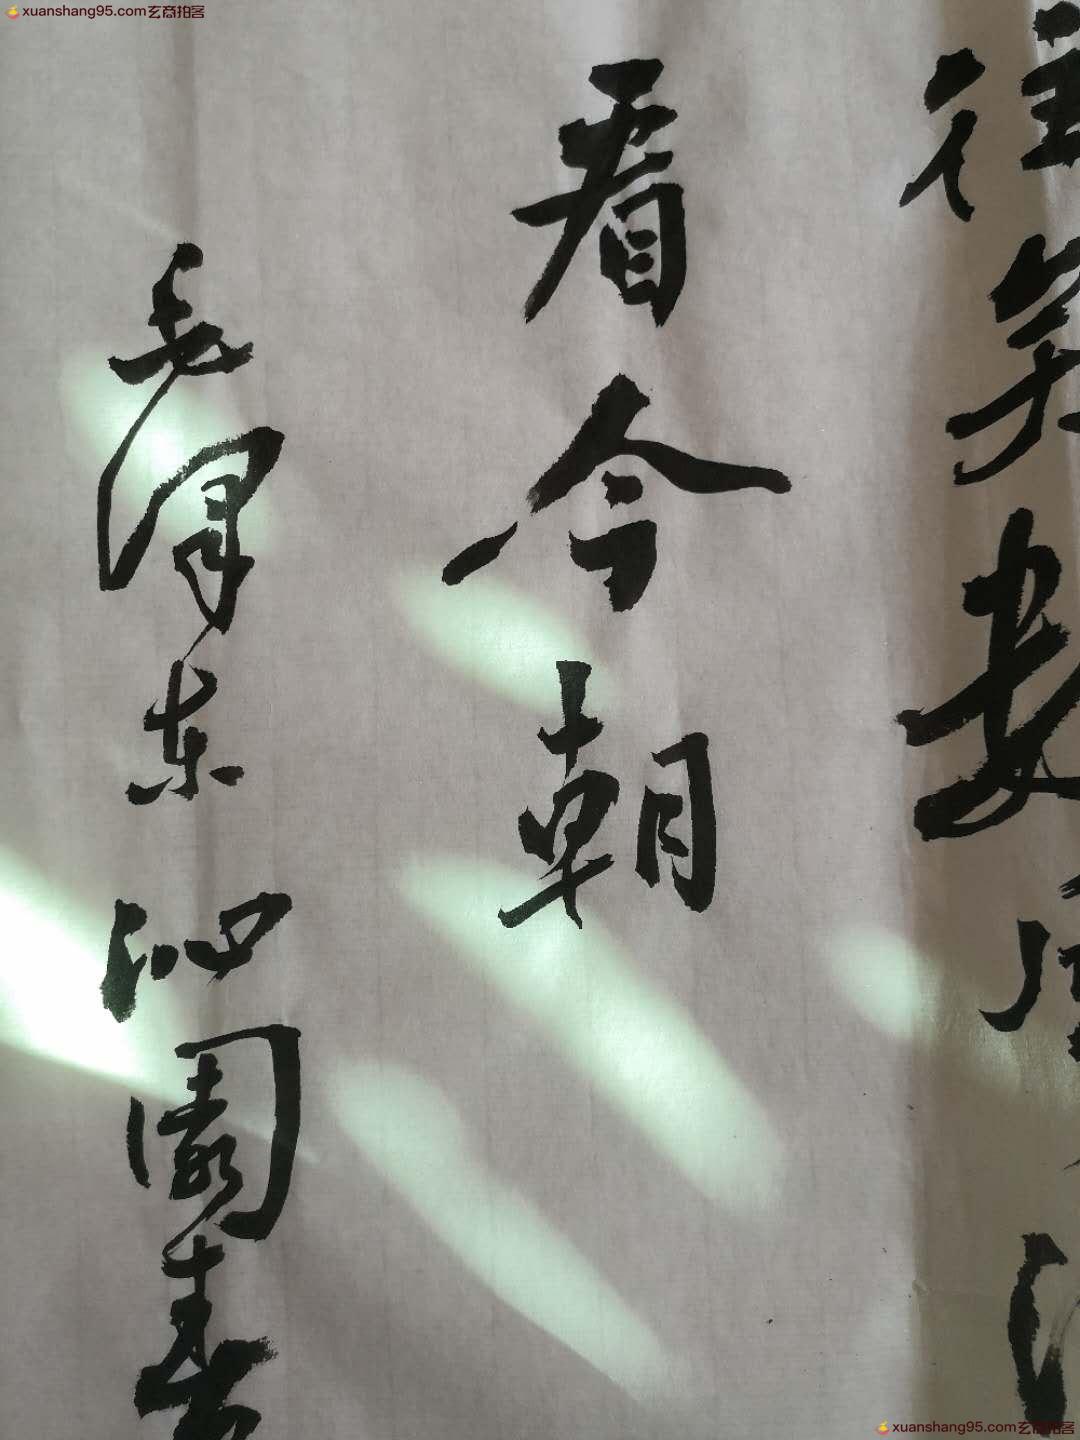 xuanshang95.com玄商拍客
往矣
看今朝
毛泽东 沁園春
xuanshang95.com玄商拍客